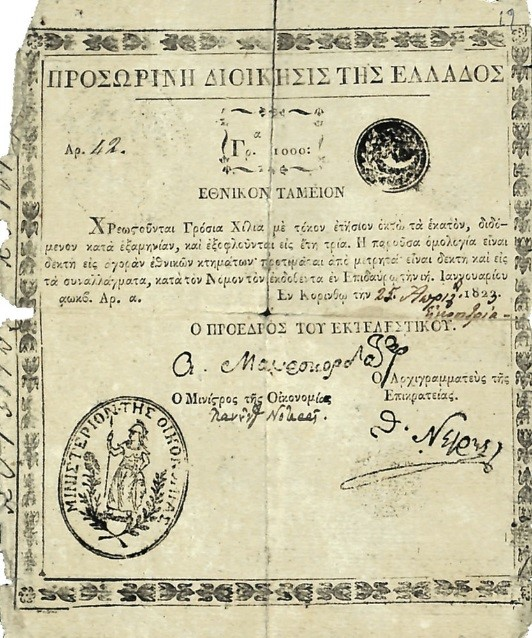 19
ΠΡΟΣΩΡΙΝΗ ΔΙΟΙΚΗΣΙΣ ΤΗΣ ΕΛΛΑΔΟΣ
Αρ. 42.
α
Γρ. 1000:
ΕΘΝΙΚΟΝ ΤΑΜΕΙΟΝ
Χρεωςοῦνται Γρόσια Χίλια μὲ τόκον ἐτήσιον ὀκτὼ τὰ ἑκατὸν, διδό-
μενον κατὰ ἑξαμηνίαν, καὶ ἐξοφλοῦνται εἰς ἔτη τρία. Η παροῦσα ὁμολογία εἶναι
δεκτὴ εἰς ἀγορὰν ἐθνικῶν κτημάτων· προτιμᾶται ἀπὸ μετρητὰ· εἶναι δεκτὴ καὶ εἰς
τὰ συναλλάγματα, κατὰ τὸν Νόμον τὸν ἐκδοθέντα ἐν Επιδαύρῳ τὴν ιη. Ιαννουαρίου
αωκβ. Αρ. α.
Εν Κορίνθῳ την 25 Απριλ 1822.
Ο ΠΡΟΕΔΡΟΣ ΤΟΥ ΕΚΤΕΛΕΣΤΙΚΟΥ.
Α. Μαυροκορδ
Ο Αρχιγραμματεὺς τῆς
Ο Μινίςρος τῆς Οἰκονομίας
Επικρατείας.
Πανου Νοταρᾶ.
Θ. Νέγρης
ΜΙΝΙΣΤΕΡΙΟΝ ΤΗΣ ΟΙΚΟΝΟΜΙΑΣ